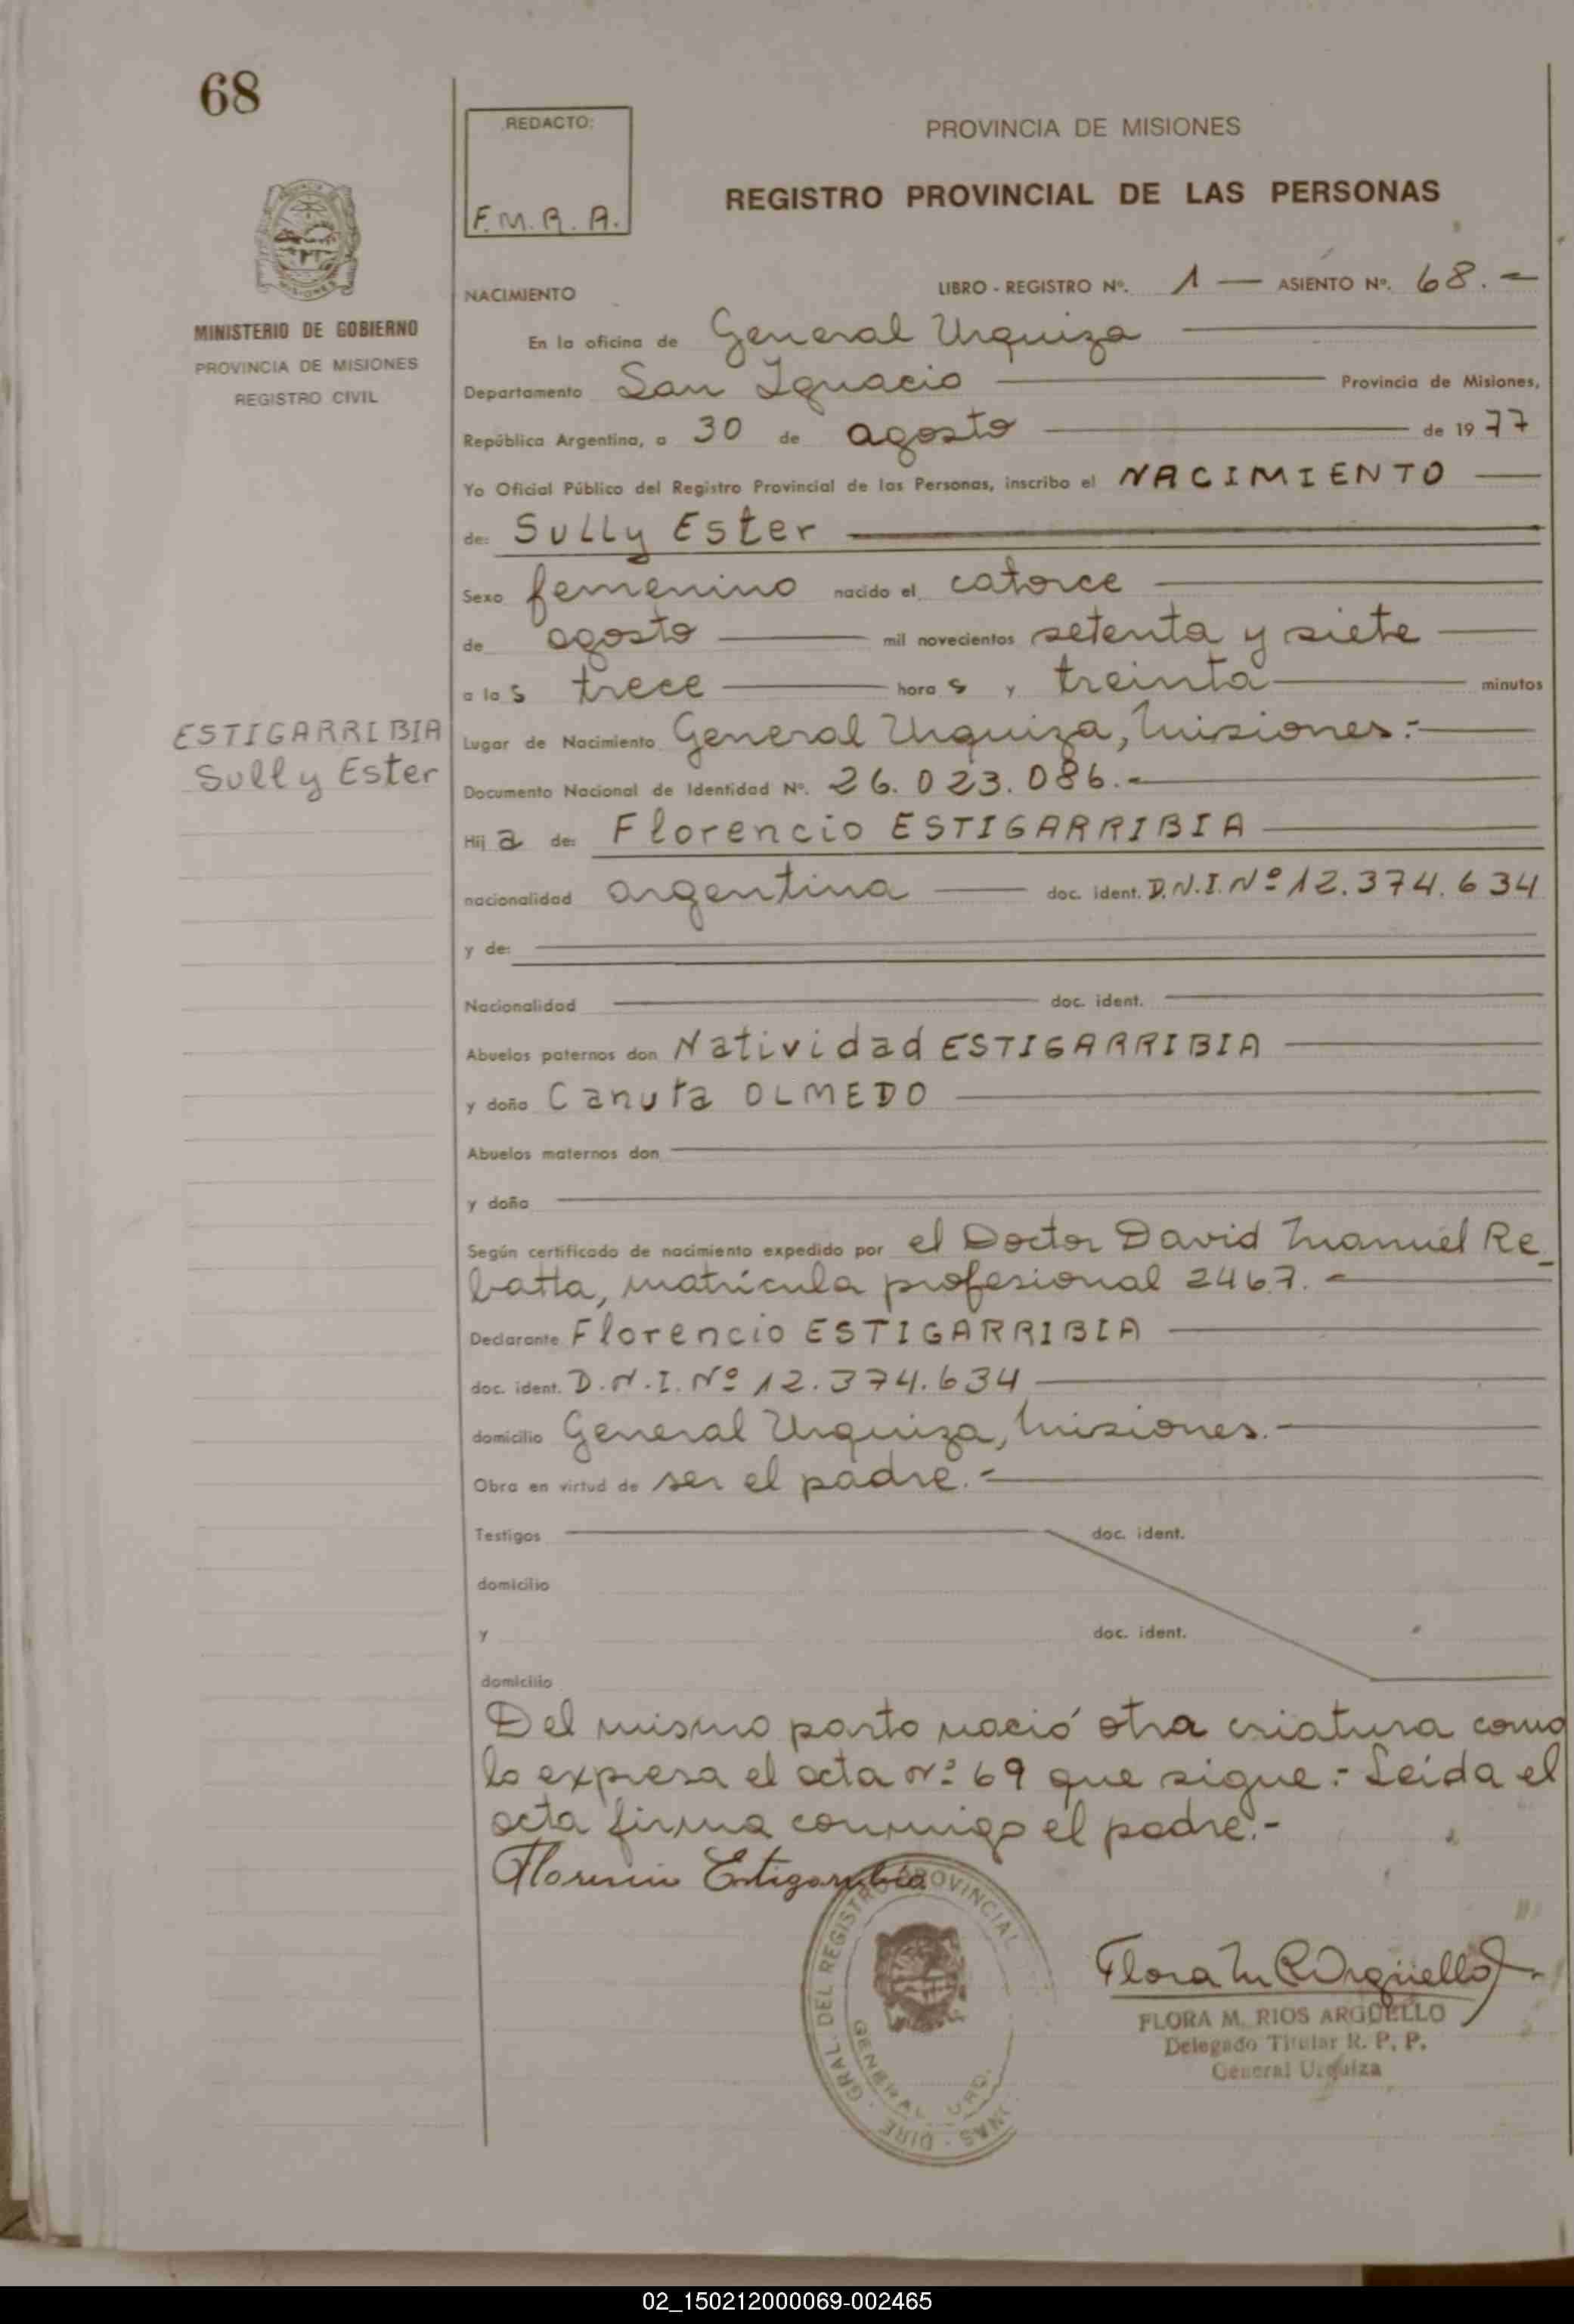 68
REDACTO:
F.M.R.A.
PROVINCIA DE MISIONES
REGISTRO PROVINCIAL DE LAS PERSONAS
MINISTERIO DE GOBIERNO
PROVINCIA DE MISIONES
REGISTRO CIVIL
NACIMIENTO
LIBRO - REGISTRO Nº. 1 — ASIENTO Nº. 68.-
En la oficina de General Urquiza
Departamento San Ignacio Provincia de Misiones,
República Argentina, a 30 de agosto de 1977
Yo Oficial Público del Registro Provincial de las Personas, inscribo el NACIMIENTO
de: Sully Ester
Sexo femenino nacido el catorce
de agosto mil novecientos setenta y siete
a las trece horas y treinta minutos
ESTIGARRIBIA
Sully Ester
Lugar de Nacimiento General Urquiza, Misiones.-
Documento Nacional de Identidad Nº. 26.023.086.-
Hija de: Florencio ESTIGARRIBIA
nacionalidad argentina doc. ident. D.N.I. Nº 12.374.634
y de:
Nacionalidad doc. ident.
Abuelos paternos don Natividad ESTIGARRIBIA
y doña Canuta OLMEDO
Abuelos maternos don
y doña
Según certificado de nacimiento expedido por el Doctor David Manuel Re_
batta, matrícula profesional 2467.-
Declarante Florencio ESTIGARRIBIA
doc. ident. D.N.I. Nº 12.374.634
domicilio General Urquiza, Misiones.-
Obra en virtud de ser el padre.-
Testigos doc. ident.
domicilio
y doc. ident.
domicilio
Del mismo parto nació otra criatura como
lo expresa el acta nº 69 que sigue.- Leída el
acta firma conmigo el padre.-
Florencio Estigarribia
GRAL. DEL REGISTRO PROVINCIAL
DIRE
GENERAL URQ.
Flora M R Argüello
FLORA M. RIOS ARGÜELLO
Delegado Titular R. P. P.
General Urquiza
02_150212000069-002465